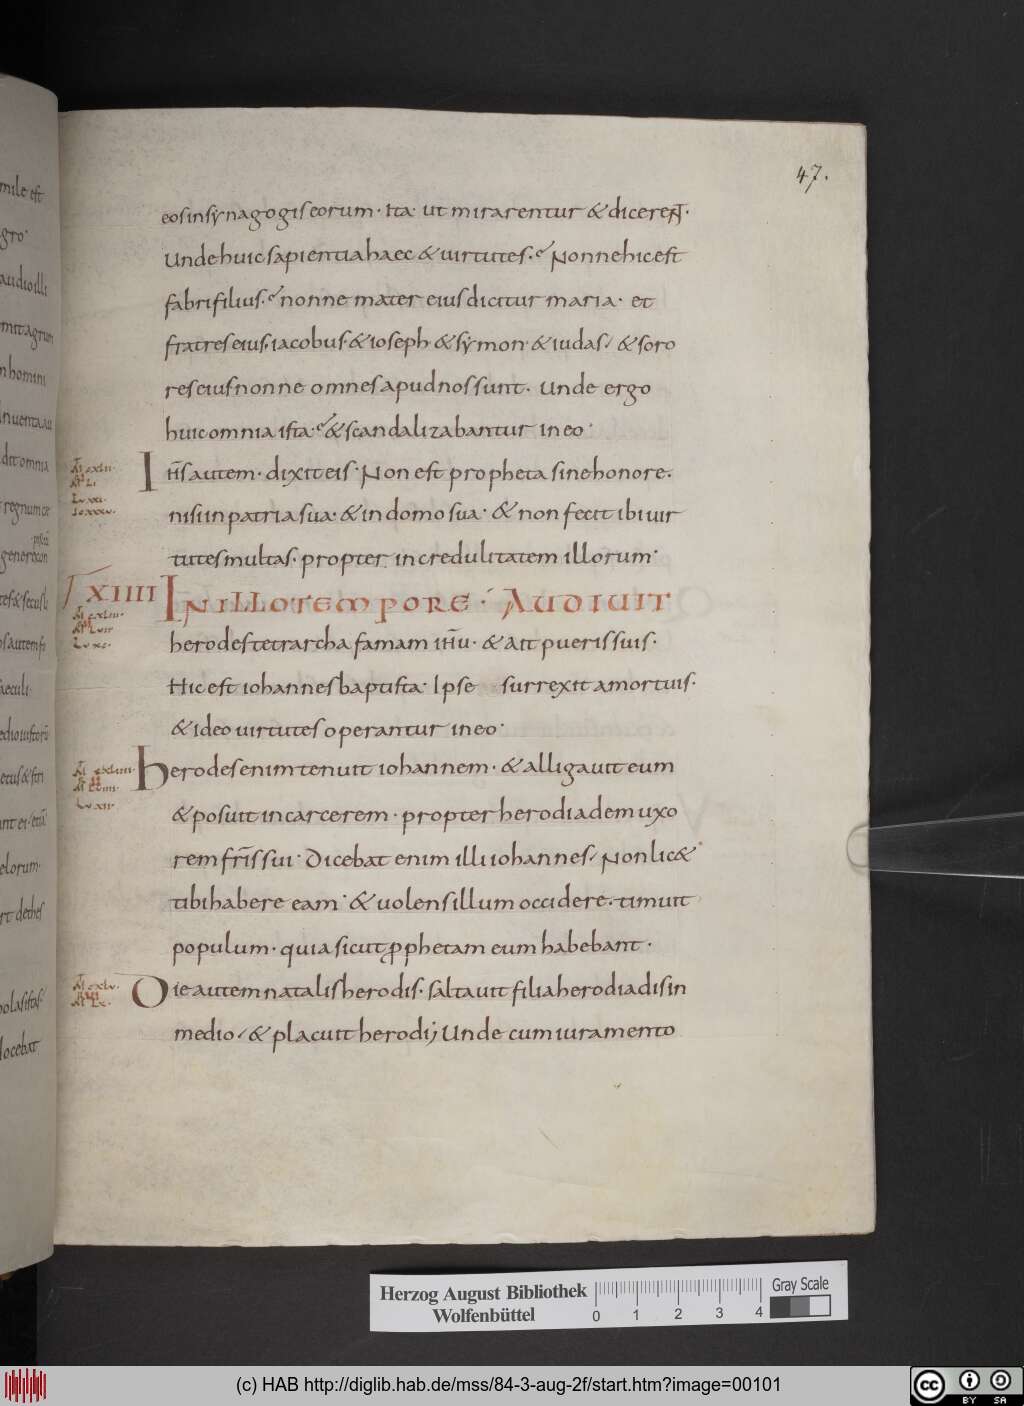 47.
eos in synagogis eorum · Ita ut mirarentur & dicerent ·
Unde huic sapientia haec & uirtutes · Nonne hic est
fabri filius · nonne mater eius dicitur maria · et
fratres eius, iacobus · & ioseph · & symon · & iudas · & soro
res eius nonne omnes apud nos sunt · Unde ergo
huic omnia ista · & scandalizabantur in eo ·
Ihs autem · dixit eis · Non est propheta sine honore ·
nisi in patria sua · & in domo sua · & non fecit ibi uir
tutes multas · propter incredulitatem illorum ·
XIIII IN ILLO TEMPORE · AUDIUIT
herodes tetrarcha famam ihu · & ait pueris suis ·
Hic est iohannes baptista · Ipse surrexit a mortuis ·
& ideo uirtutes operantur in eo ·
herodes enim tenuit iohannem · & alligauit eum
& posuit in carcerem · propter herodiadem uxo
rem fris sui · Dicebat enim illi iohannes · Non lic&
tibi habere eam · & uolens illum occidere · timuit
populum · quia sicut pphetam eum habebant ·
Die autem natalis herodis · saltauit filia herodiadis in
medio · & placuit herodi; Unde cum iuramento
Herzog August Bibliothek
Wolfenbüttel
0 1 2 3 4
Gray Scale
(c) HAB http://diglib.hab.de/mss/84-3-aug-2f/start.htm?image=00101
cc BY SA